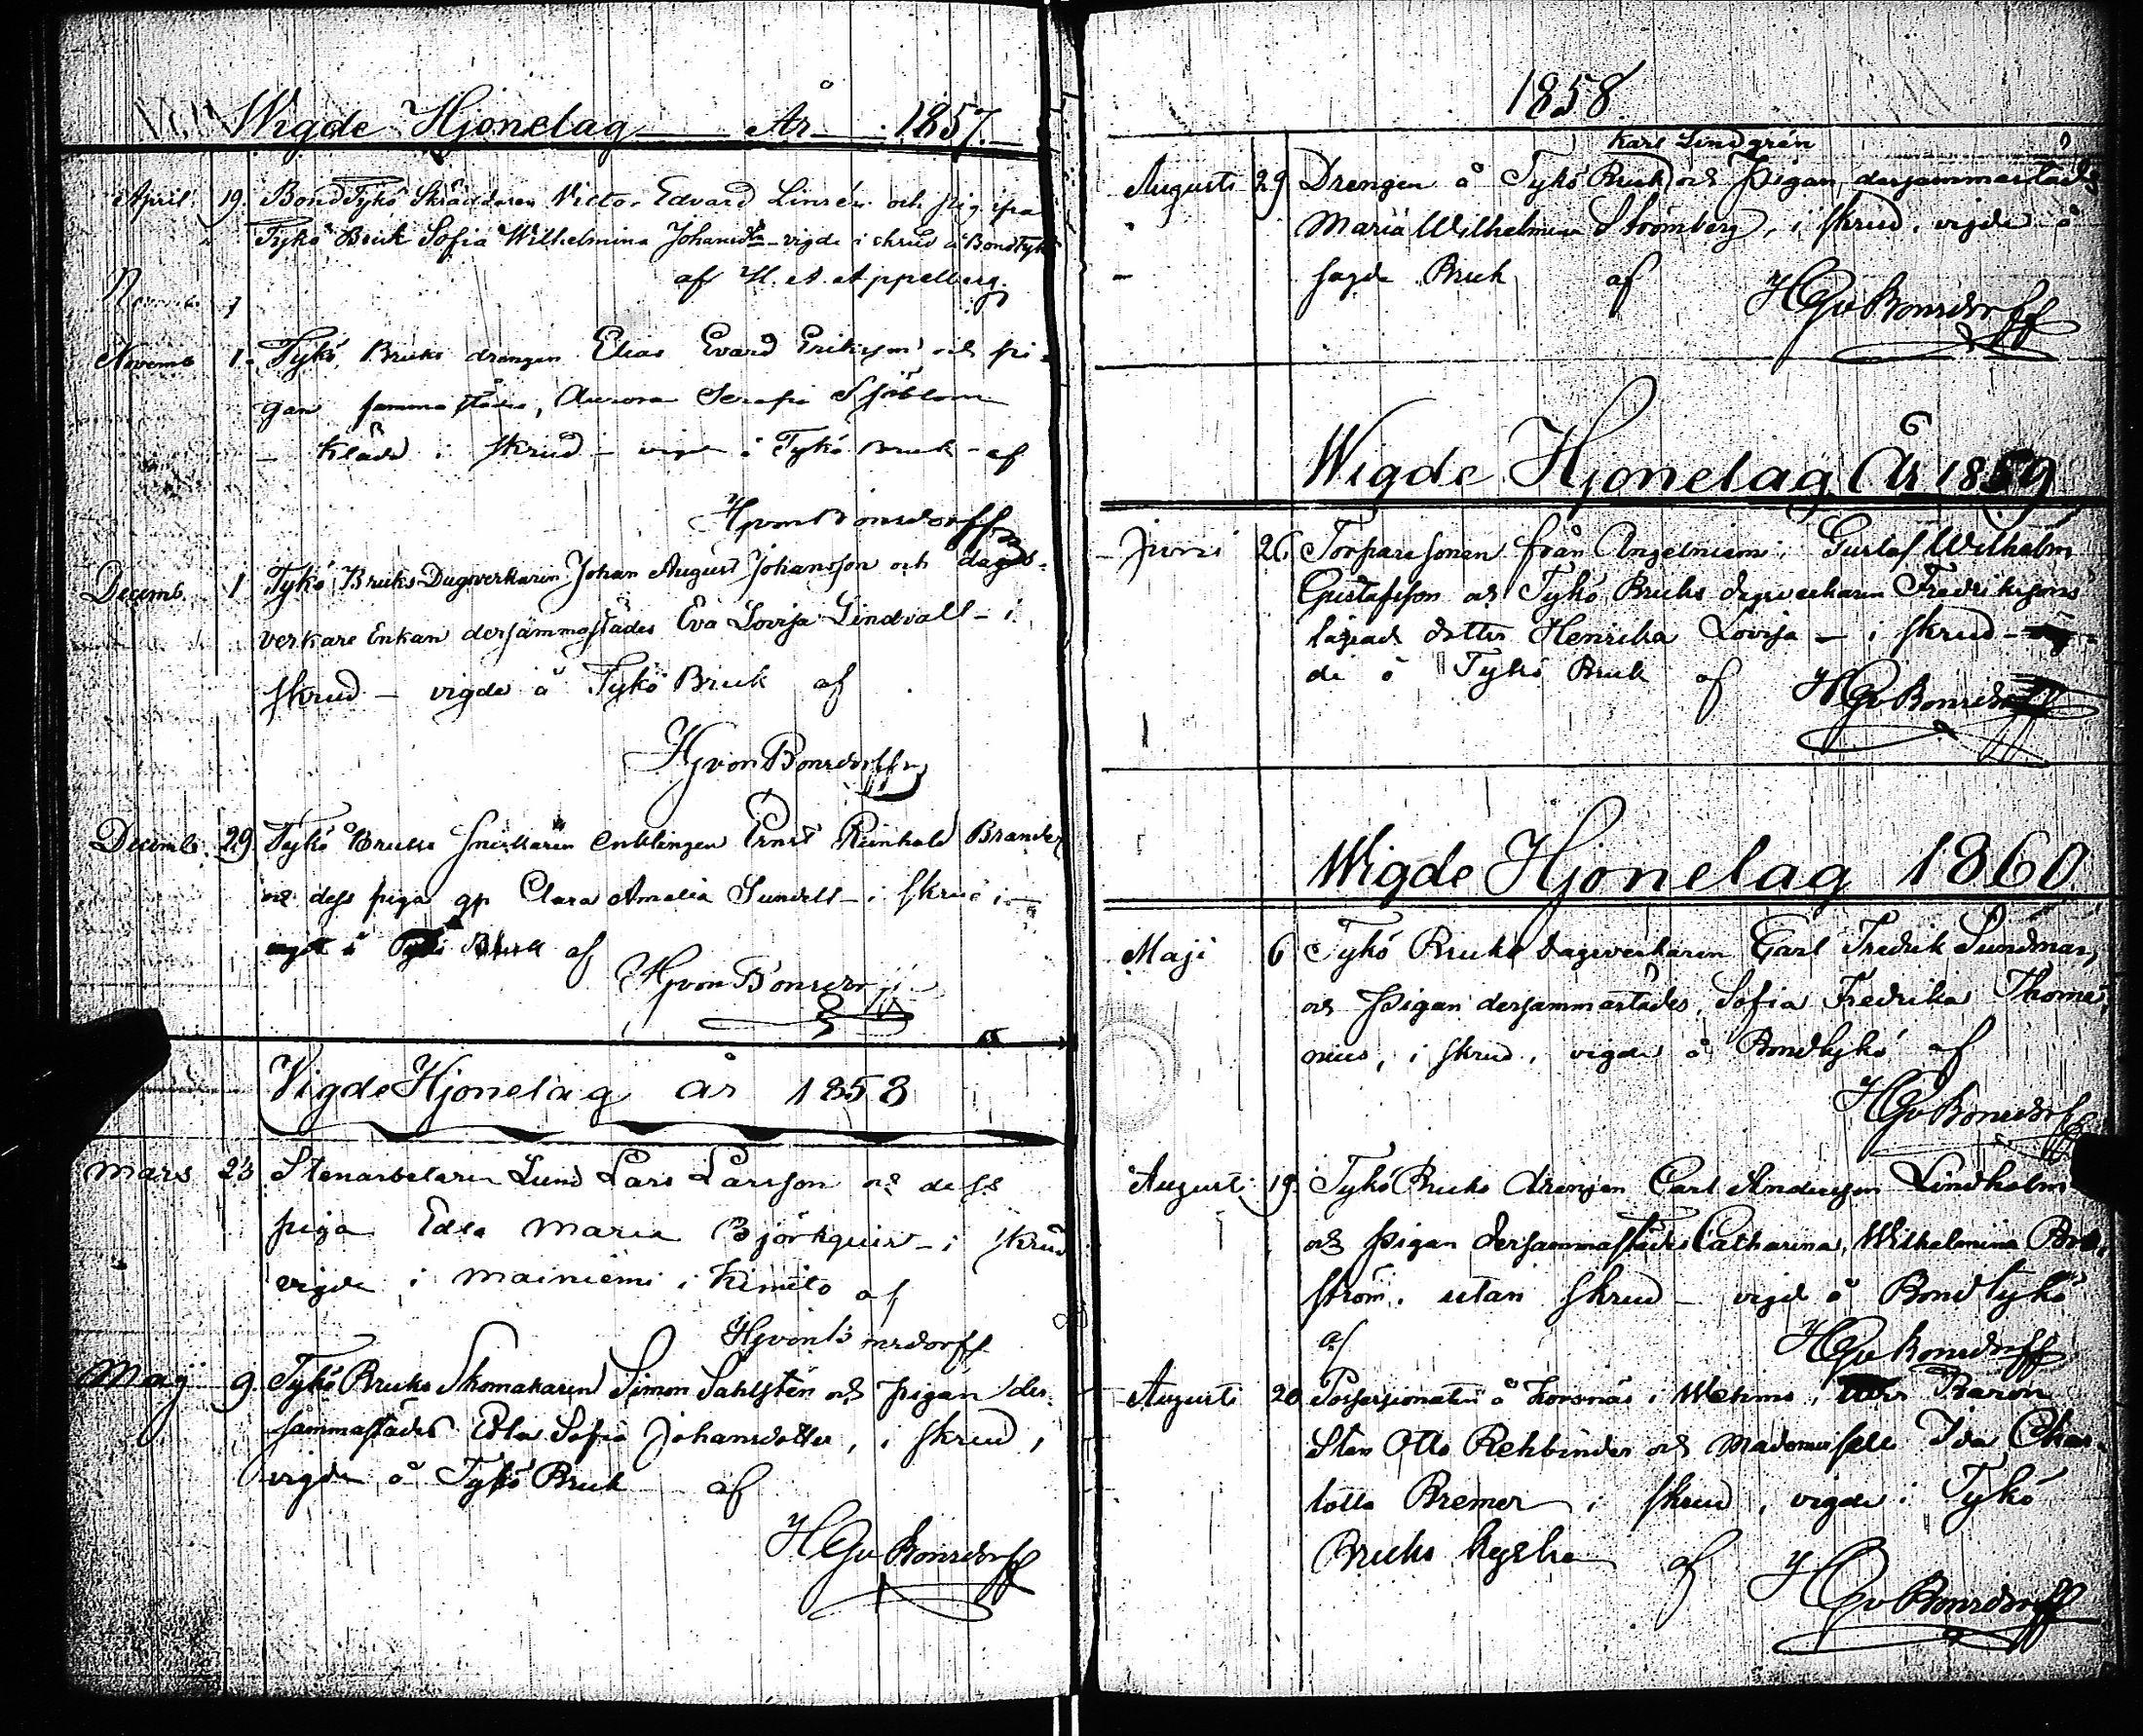 Wigde Hjonelag År 1857.
April. 19. BondTykö Skräddaren Victor Edvard Linrén och pig. ifrån
Tykö Bruk Sofia Wilhelmina Johansdtr – vigde i skrud å Bondtykö
af H. A. Appelberg.
Novemb 1
Novemb 1. Tykö Bruks drängen Elias Evard Eriksson och pi-
gan sammastädes, Aurora Serafia Sjöblom
– klädd i skrud – vigde i Tykö Bruk – af
HGvon Bonsdorff
Decemb. 1 Tykö Bruks Dagsverkaren Johan August Johansson och dags-
verkare Enkan dersammastädes Eva Lovisa Lindvall – i
skrud – vigde å Tykö Bruk af
HGvon Bonsdorff
Decemb. 29. Tykö Bruks snickaren enklingen Ernst Reinhold Brander
och dess piga gp Clara Amalia Sundell – i skrud
å Tykö Bruk af
HGvon Bonsdorff
Vigde Hjonelag år 1858
Mars 23 Stenarbetaren Lund Lars Larsson och dess
piga Edla Maria Björkqvist – i skrud
vigde i Mainiemi i Kimito af
HGvon Bonsdorff
Maij 9. Tykö Bruks Skomakaren Simon Sahlstén och pigan der-
sammastädes Edla Sofia Johansdotter, i skrud,
vigde å Tykö Bruk af
HGv Bonsdorff
1858
Karl Lindgrén
Augusti 29 Drengen å Tykö Bruk och Pigan dersammastädes
Maria Wilhelmina Strömberg, i skrud, vigde å
sagde Bruk af HGv Bonsdorff
Wigde Hjonelag År 1859
Juni 26. Torparesonen från Angelniemi, Gustaf Wilhelm
Gustafsson och Tykö Bruks dagsverkaren Fredrikssons
dotter Henrika Lovisa – i skrud – vig-
de å Tykö Bruk af HGv Bonsdorff
Wigde Hjonelag 1860.
Maji 6 Tykö Bruks dagsverkaren Carl Fredrik Sundman,
och Pigan dersammastädes, Sofia Fredrika Thome-
nius, i skrud, vigde å Bondtykö af
HGv Bonsdorff
Augusti 19. Tykö Bruks drengen Carl Andersson Lindholm
och pigan dersammastädes Catharina Wilhelmina
ström. utan skrud – vigde å Bondtykö
af HGv Bonsdorff
Augusti 20 Possessionaten å Korsnäs i Wehmo, Baron
Sten Otto Rehbinder och Mademoiselle Ida Char-
lotta Bremer i skrud, vigde i Tykö
Bruks kyrka af HGv Bonsdorff